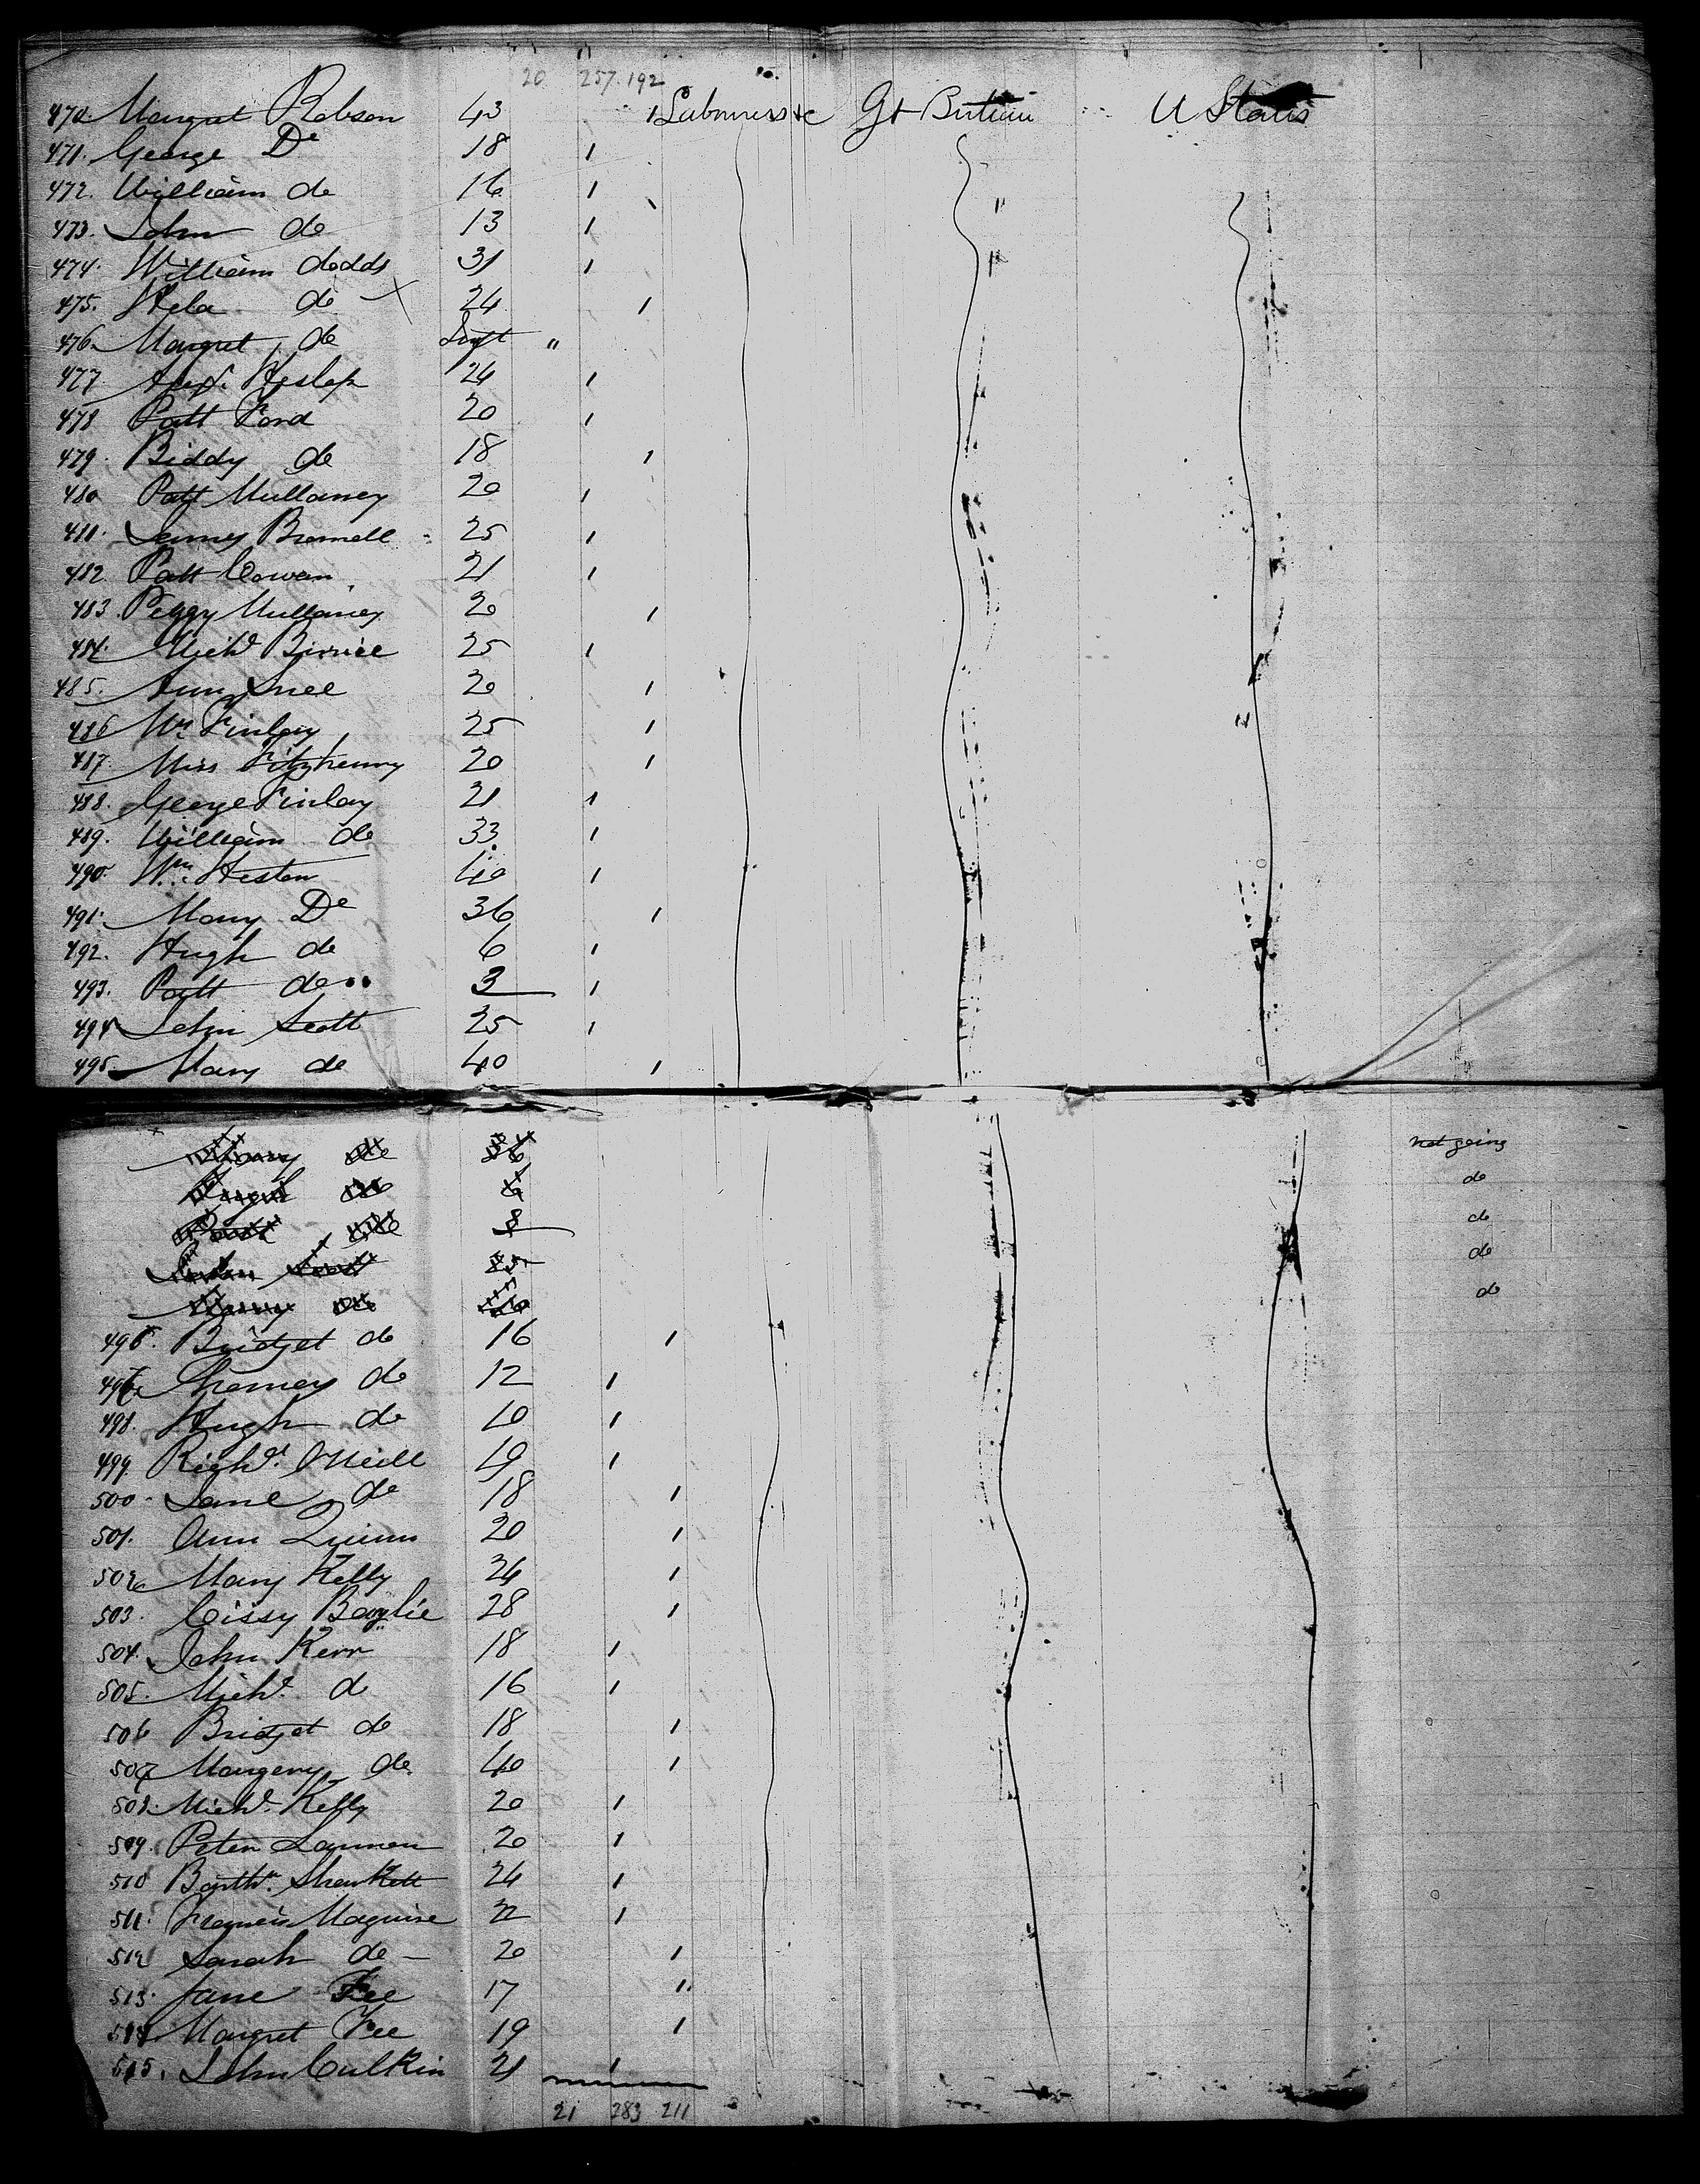 20 257. 192
470. Margret Robson 43 1 Labourers &c Gt Britain U States
471. George Do 18 1
472. William do 16 1
473. John do 13 1
474. William dodds 31 1
475. do 24 1
476. Margret do Inft "
477. Alexr. Heslop 24 1
478 Patt Ford 20 1
479. Biddy do 18 1
480 Patt Mullaney 20 1
481. James Bramell 25 1
482. Patt Cowan 21 1
483. Peggy Mullaney 20 1
484. Michl 25 1
485. Ann Snee 20 1
486 Finlay 25 1
487. Miss Fitzhenry 20 1
488. George Finlay 21 1
489. William do 33 1
490. Wm. Heston 40 1
491. Mary Do 36 1
492. Hugh do 6 1
493. Patt do 3 1
494 John Scott 25 1
495. Mary do 40 1
Mary do 36 not going
Hugh do 6 do
Patt do 3 do
John Scott 25 do
Mary do 40 do
496. Bridget do 16 1
497. do 12 1
498. Hugh do 10 1
499. Richd. ONeill 19 1
500. Jane do 18 1
501. Ann Quinn 20 1
502 Mary Kelly 24 1
503. Cissy Baylie 28 1
504. John Kerr 18 1
505. Michl. d 16 1
506 Bridget do 18 1
507 Margery do 40 1
508. Michl. Kelly 20 1
509. Peter Lannon 20 1
510 Barthw. 24 1
511. Francis Maguire 22 1
512 Sarah do 20 1
513. Jane Fee 17 1
514. Margret Fee 19 1
515. John Culkin 21 1
21 283 211